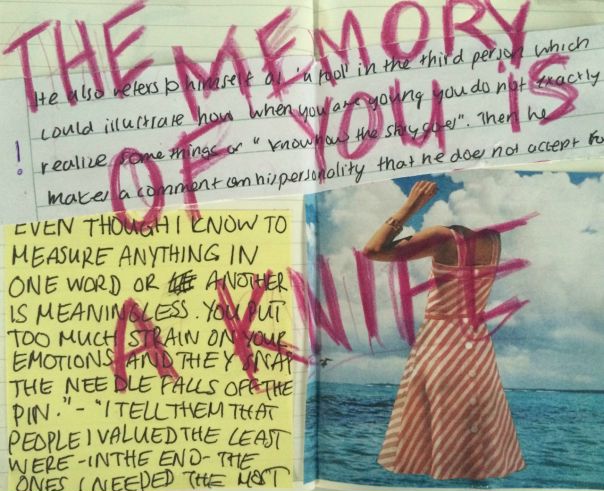 THE MEMORY
OF YOU IS
A KNIFE
He also refers to himself as "a fool" in the third person which
could illustrate how when you are young you do not exactly
realize some things or "know how the story goes". Then he
makes a comment on his personality that he does not accept
!
EVEN THOUGH I KNOW TO
MEASURE ANYTHING IN
ONE WORD OR ANOTHER
IS MEANINGLESS. YOU PUT
TOO MUCH STRAIN ON YOUR
EMOTIONS AND THEY SNAP
THE NEEDLE FALLS OFF THE
PIN." - "I TELL THEM THAT
PEOPLE I VALUED THE LEAST
WERE - IN THE END - THE
ONES I NEEDED THE MOST